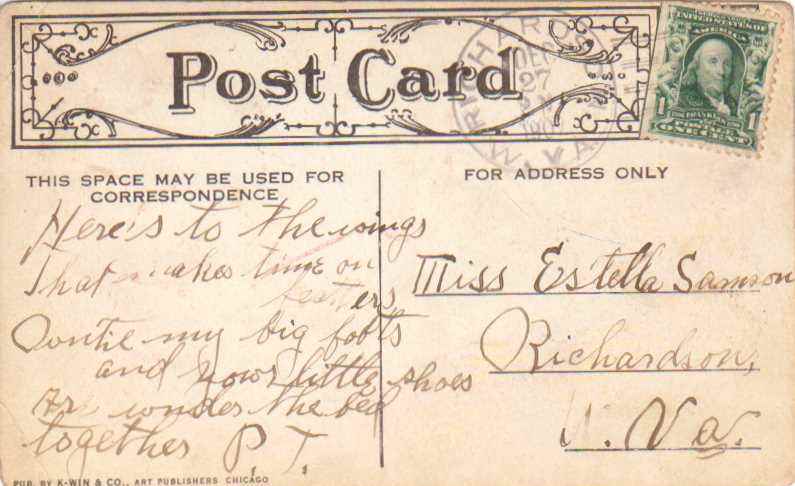 Post Card
RICHARD
DEC
27
W. VA.
UNITED STATES OF
AMERICA
1 1
FRANKLIN
ONE CENT
THIS SPACE MAY BE USED FOR
CORRESPONDENCE
FOR ADDRESS ONLY
Here's to the wings
That makes time on
Ontie my big foots
and your little shoes
Are wonder the bed
together P. T.
Miss Estella Samson
Richardson,
W. Va.
PUB. BY K-WIN & CO., ART PUBLISHERS CHICAGO